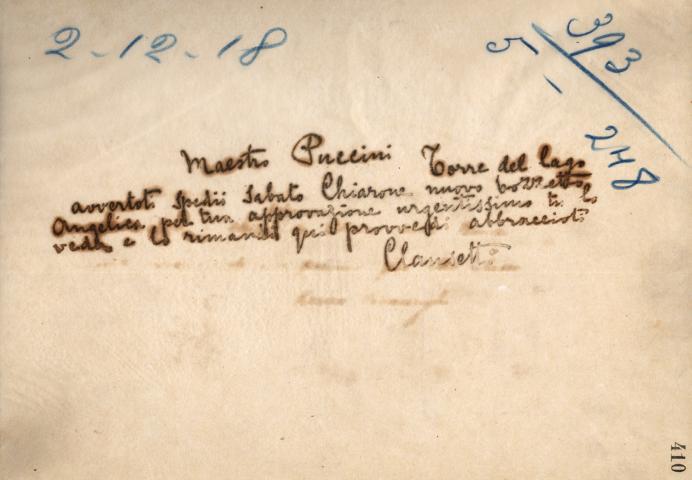 2-12-18
393
5-1
248
Maestro Puccini Torre del lago
avvertoti spedii sabato Chiarone nuovo bozzetto
Angelica per tua approvazione urgentissimo tu lo
veda e lo rimandi qui provvedi abbraccioti
Clausetti
410